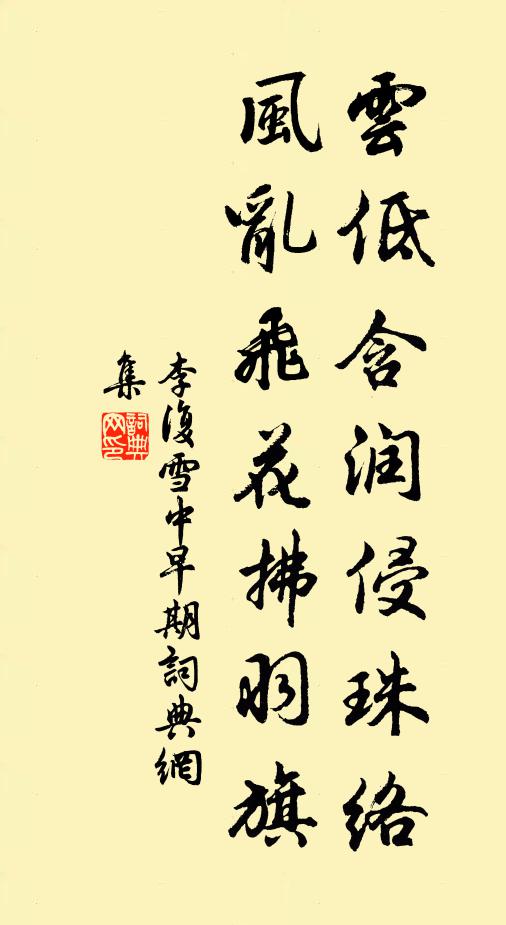 雲低含润侵珠络
風亂飛花拂羽旗
李復雪中早期詞典網
集
詞典网印